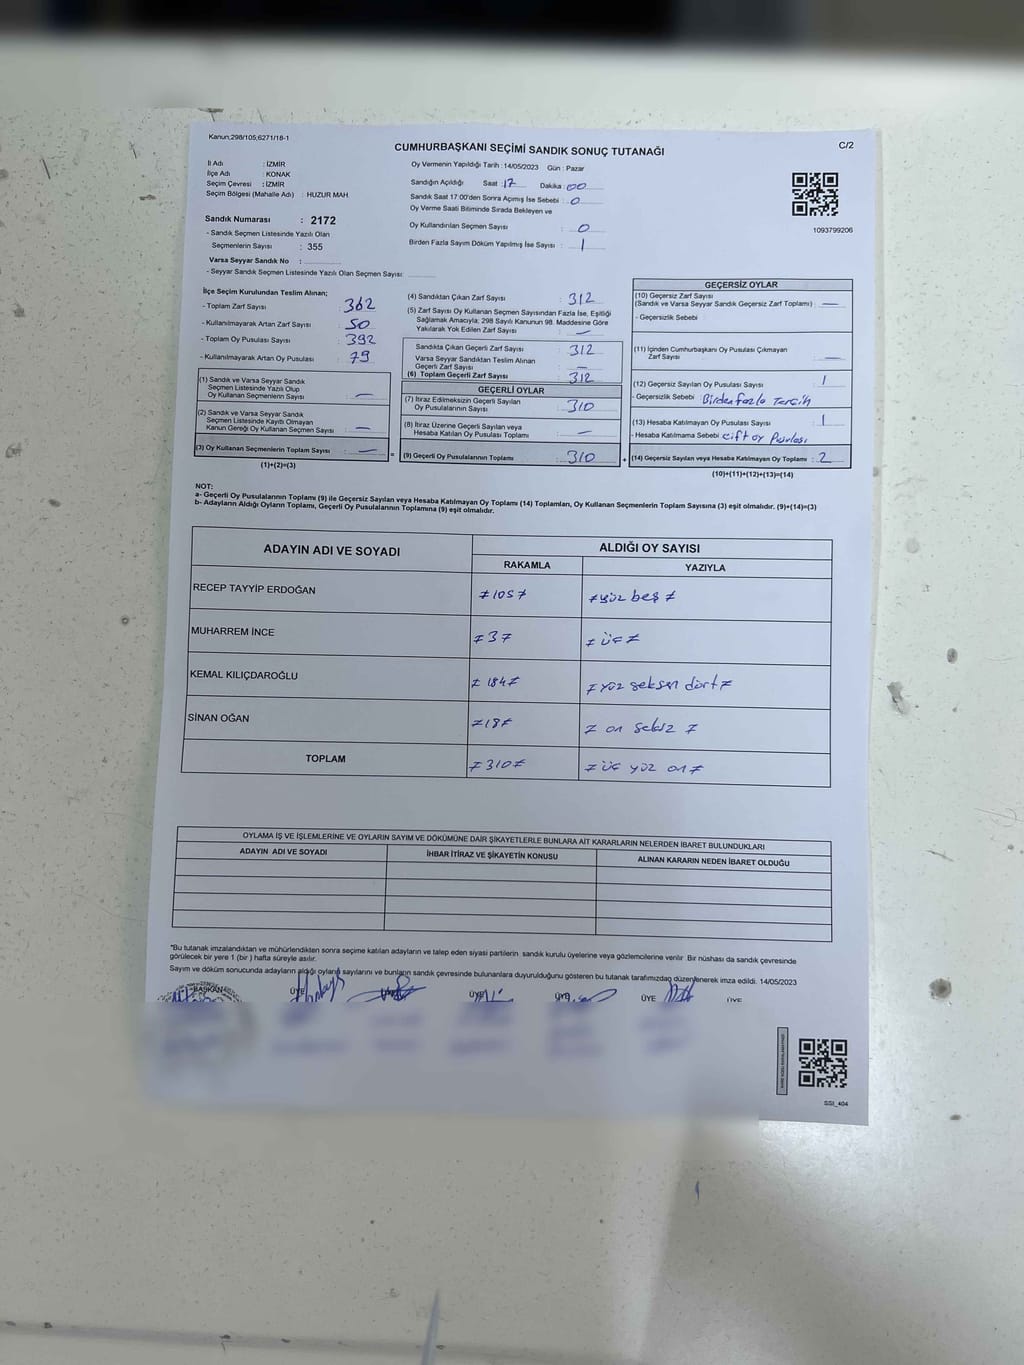 Kanun;298/105;6271/18-1
C/2
CUMHURBAŞKANI SEÇİMİ SANDIK SONUÇ TUTANAĞI
İl Adı : İZMİR
İlçe Adı : KONAK
Seçim Çevresi : İZMİR
Seçim Bölgesi (Mahalle Adı) : HUZUR MAH.
Sandık Numarası : 2172
- Sandık Seçmen Listesinde Yazılı Olan
Seçmenlerin Sayısı : 355
Varsa Seyyar Sandık No :
- Seyyar Sandık Seçmen Listesinde Yazılı Olan Seçmen Sayısı:
Oy Vermenin Yapıldığı Tarih : 14/05/2023 Gün : Pazar
Sandığın Açıldığı Saat : 17 Dakika : 00
Sandık Saat 17:00'den Sonra Açımış İse Sebebi : 0
Oy Verme Saati Bitiminde Sırada Bekleyen ve
Oy Kullandırılan Seçmen Sayısı : 0
Birden Fazla Sayım Döküm Yapılmış İse Sayısı : 1
1093799206
İlçe Seçim Kurulundan Teslim Alınan;
- Toplam Zarf Sayısı : 362
- Kullanılmayarak Artan Zarf Sayısı : 50
- Toplam Oy Pusulası Sayısı : 392
- Kullanılmayarak Artan Oy Pusulası : 79
(1) Sandık ve Varsa Seyyar Sandık
Seçmen Listesinde Yazılı Olup
Oy Kullanan Seçmenlerin Sayısı : —
(2) Sandık ve Varsa Seyyar Sandık
Seçmen Listesinde Kayıtlı Olmayan
Kanun Gereği Oy Kullanan Seçmen Sayısı : —
(3) Oy Kullanan Seçmenlerin Toplam Sayısı : —
(1)+(2)=(3)
(4) Sandıktan Çıkan Zarf Sayısı : 312
(5) Zarf Sayısı Oy Kullanan Seçmen Sayısından Fazla İse, Eşitliği
Sağlamak Amacıyla; 298 Sayılı Kanunun 98. Maddesine Göre
Yakılarak Yok Edilen Zarf Sayısı : —
Sandıkta Çıkan Geçerli Zarf Sayısı : 312
Varsa Seyyar Sandıktan Teslim Alınan
Geçerli Zarf Sayısı : —
(6) Toplam Geçerli Zarf Sayısı : 312
GEÇERLİ OYLAR
(7) İtiraz Edilmeksizin Geçerli Sayılan
Oy Pusulalarının Sayısı : 310
(8) İtiraz Üzerine Geçerli Sayılan veya
Hesaba Katılan Oy Pusulası Toplamı : —
=
(9) Geçerli Oy Pusulalarının Toplamı : 310
+
GEÇERSİZ OYLAR
(10) Geçersiz Zarf Sayısı
(Sandık ve Varsa Seyyar Sandık Geçersiz Zarf Toplamı) : —
- Geçersizlik Sebebi
(11) İçinden Cumhurbaşkanı Oy Pusulası Çıkmayan
Zarf Sayısı : —
(12) Geçersiz Sayılan Oy Pusulası Sayısı : 1
- Geçersizlik Sebebi Birden fazla Tercih
(13) Hesaba Katılmayan Oy Pusulası Sayısı : 1
- Hesaba Katılmama Sebebi çift oy Pusulası
(14) Geçersiz Sayılan veya Hesaba Katılmayan Oy Toplamı : 2
(10)+(11)+(12)+(13)=(14)
NOT:
a- Geçerli Oy Pusulalarının Toplamı (9) ile Geçersiz Sayılan veya Hesaba Katılmayan Oy Toplamı (14) Toplamları, Oy Kullanan Seçmenlerin Toplam Sayısına (3) eşit olmalıdır. (9)+(14)=(3)
b- Adayların Aldığı Oyların Toplamı, Geçerli Oy Pusulalarının Toplamına (9) eşit olmalıdır.
ADAYIN ADI VE SOYADI
ALDIĞI OY SAYISI
RAKAMLA YAZIYLA
RECEP TAYYİP ERDOĞAN ≠ 105 ≠ ≠ yüz beş ≠
MUHARREM İNCE ≠ 3 ≠ ≠ üç ≠
KEMAL KILIÇDAROĞLU ≠ 184 ≠ ≠ yüz seksen dört ≠
SİNAN OĞAN ≠ 18 ≠ ≠ on sekiz ≠
TOPLAM ≠ 310 ≠ ≠ üç yüz on ≠
OYLAMA İŞ VE İŞLEMLERİNE VE OYLARIN SAYIM VE DÖKÜMÜNE DAİR ŞİKAYETLERLE BUNLARA AİT KARARLARIN NELERDEN İBARET BULUNDUKLARI
ADAYIN ADI VE SOYADI İHBAR İTİRAZ VE ŞİKAYETİN KONUSU ALINAN KARARIN NEDEN İBARET OLDUĞU
*Bu tutanak imzalandıktan ve mühürlendikten sonra seçime katılan adayların ve talep eden siyasi partilerin sandık kurulu üyelerine veya gözlemcilerine verilir. Bir nüshası da sandık çevresinde
görülecek bir yere 1 (bir ) hafta süreyle asılır.
Sayım ve döküm sonucunda adayların aldığı oyların sayılarını ve bunların sandık çevresinde bulunanlara duyurulduğunu gösteren bu tutanak tarafımızdan düzenlenerek imza edildi. 14/05/2023
BAŞKAN ÜYE ÜYE ÜYE ÜYE ÜYE
SSI_404